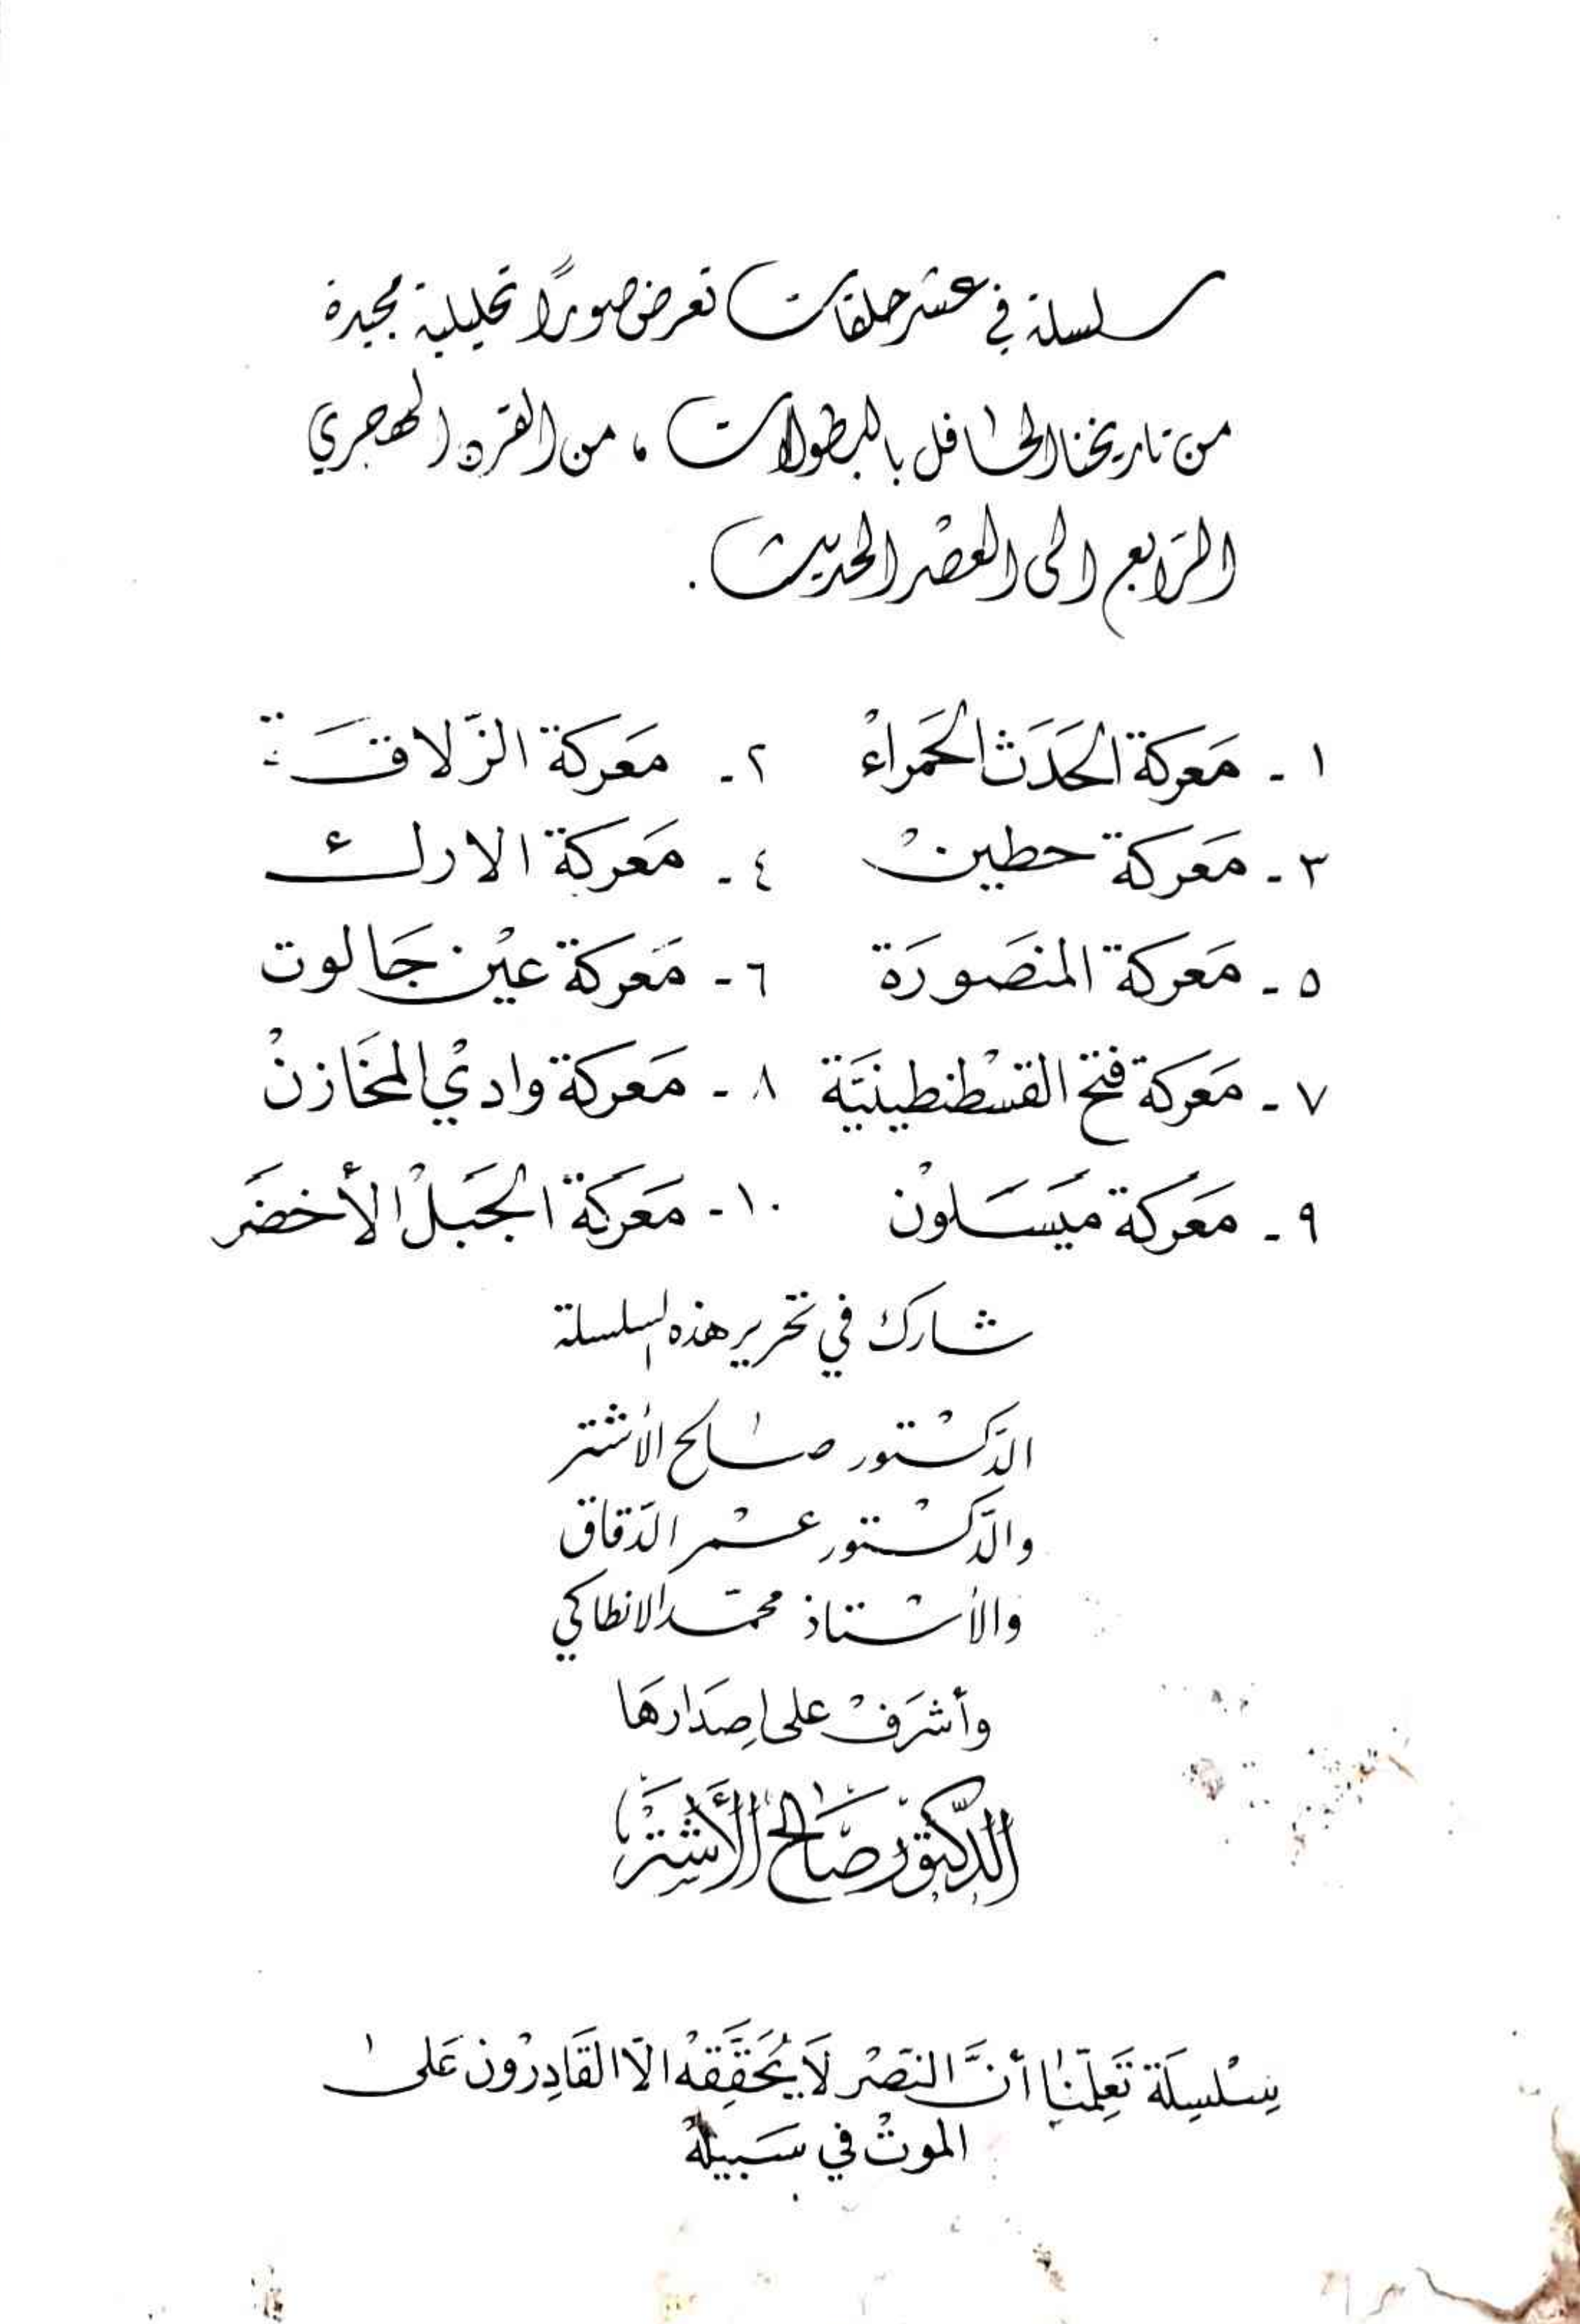 سلسلة في عشر حلقات تعرض صورًا تحليلية مجيدة
من تاريخنا الحافل بالبطولات، من القرن الهجري
الرّابع الى العصْر الحديث.
١ - مَعركة الحَدَث الحَمراءْ ٢ - مَعركة الزّلاقَة
٣ - مَعركة حطينْ ٤ - مَعركة الارك
٥ - مَعركة المنصَورَة ٦ - مَعركة عيْن جَالوت
٧ - مَعركة فتح القسْطنطينيَّة ٨ - مَعركة واديْ المخَازنْ
٩ - مَعركة ميَسَلوْن ١٠ - مَعركَة الجَبَلْ الأخضَر
شارك في تحرير هذه السلسلة
الدّكتور صالح الأشتر
والدّكتور عمر الدّقاق
والأستاذ محمّد الانطاكي
وأشرَفْ على اِصدَارهَا
الدّكتور صَالح الأَشتَر
سِلْسِلَة تَعِلّمنا أنَّ النصْر لَا يُحَقَّقِهْ الّا القَادِرْون عَلى
الموتْ في سَبيلهْ